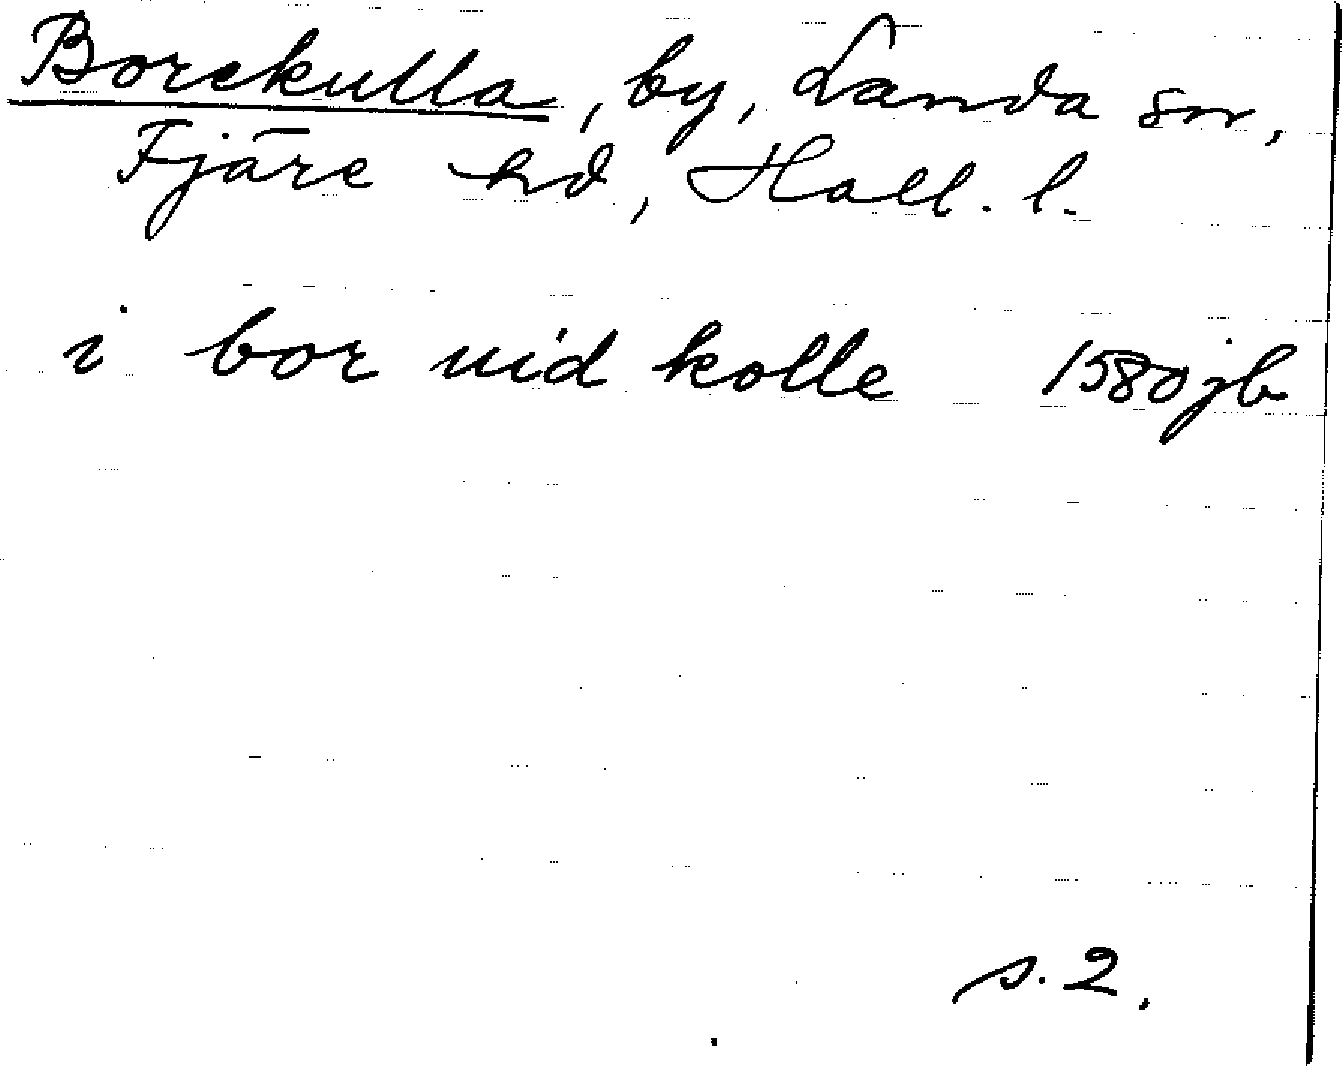 Borekulla, by, Landa sn,
Fjäre hd, Hall. l.
i bor uid kolle 1580 jb
s. 2.